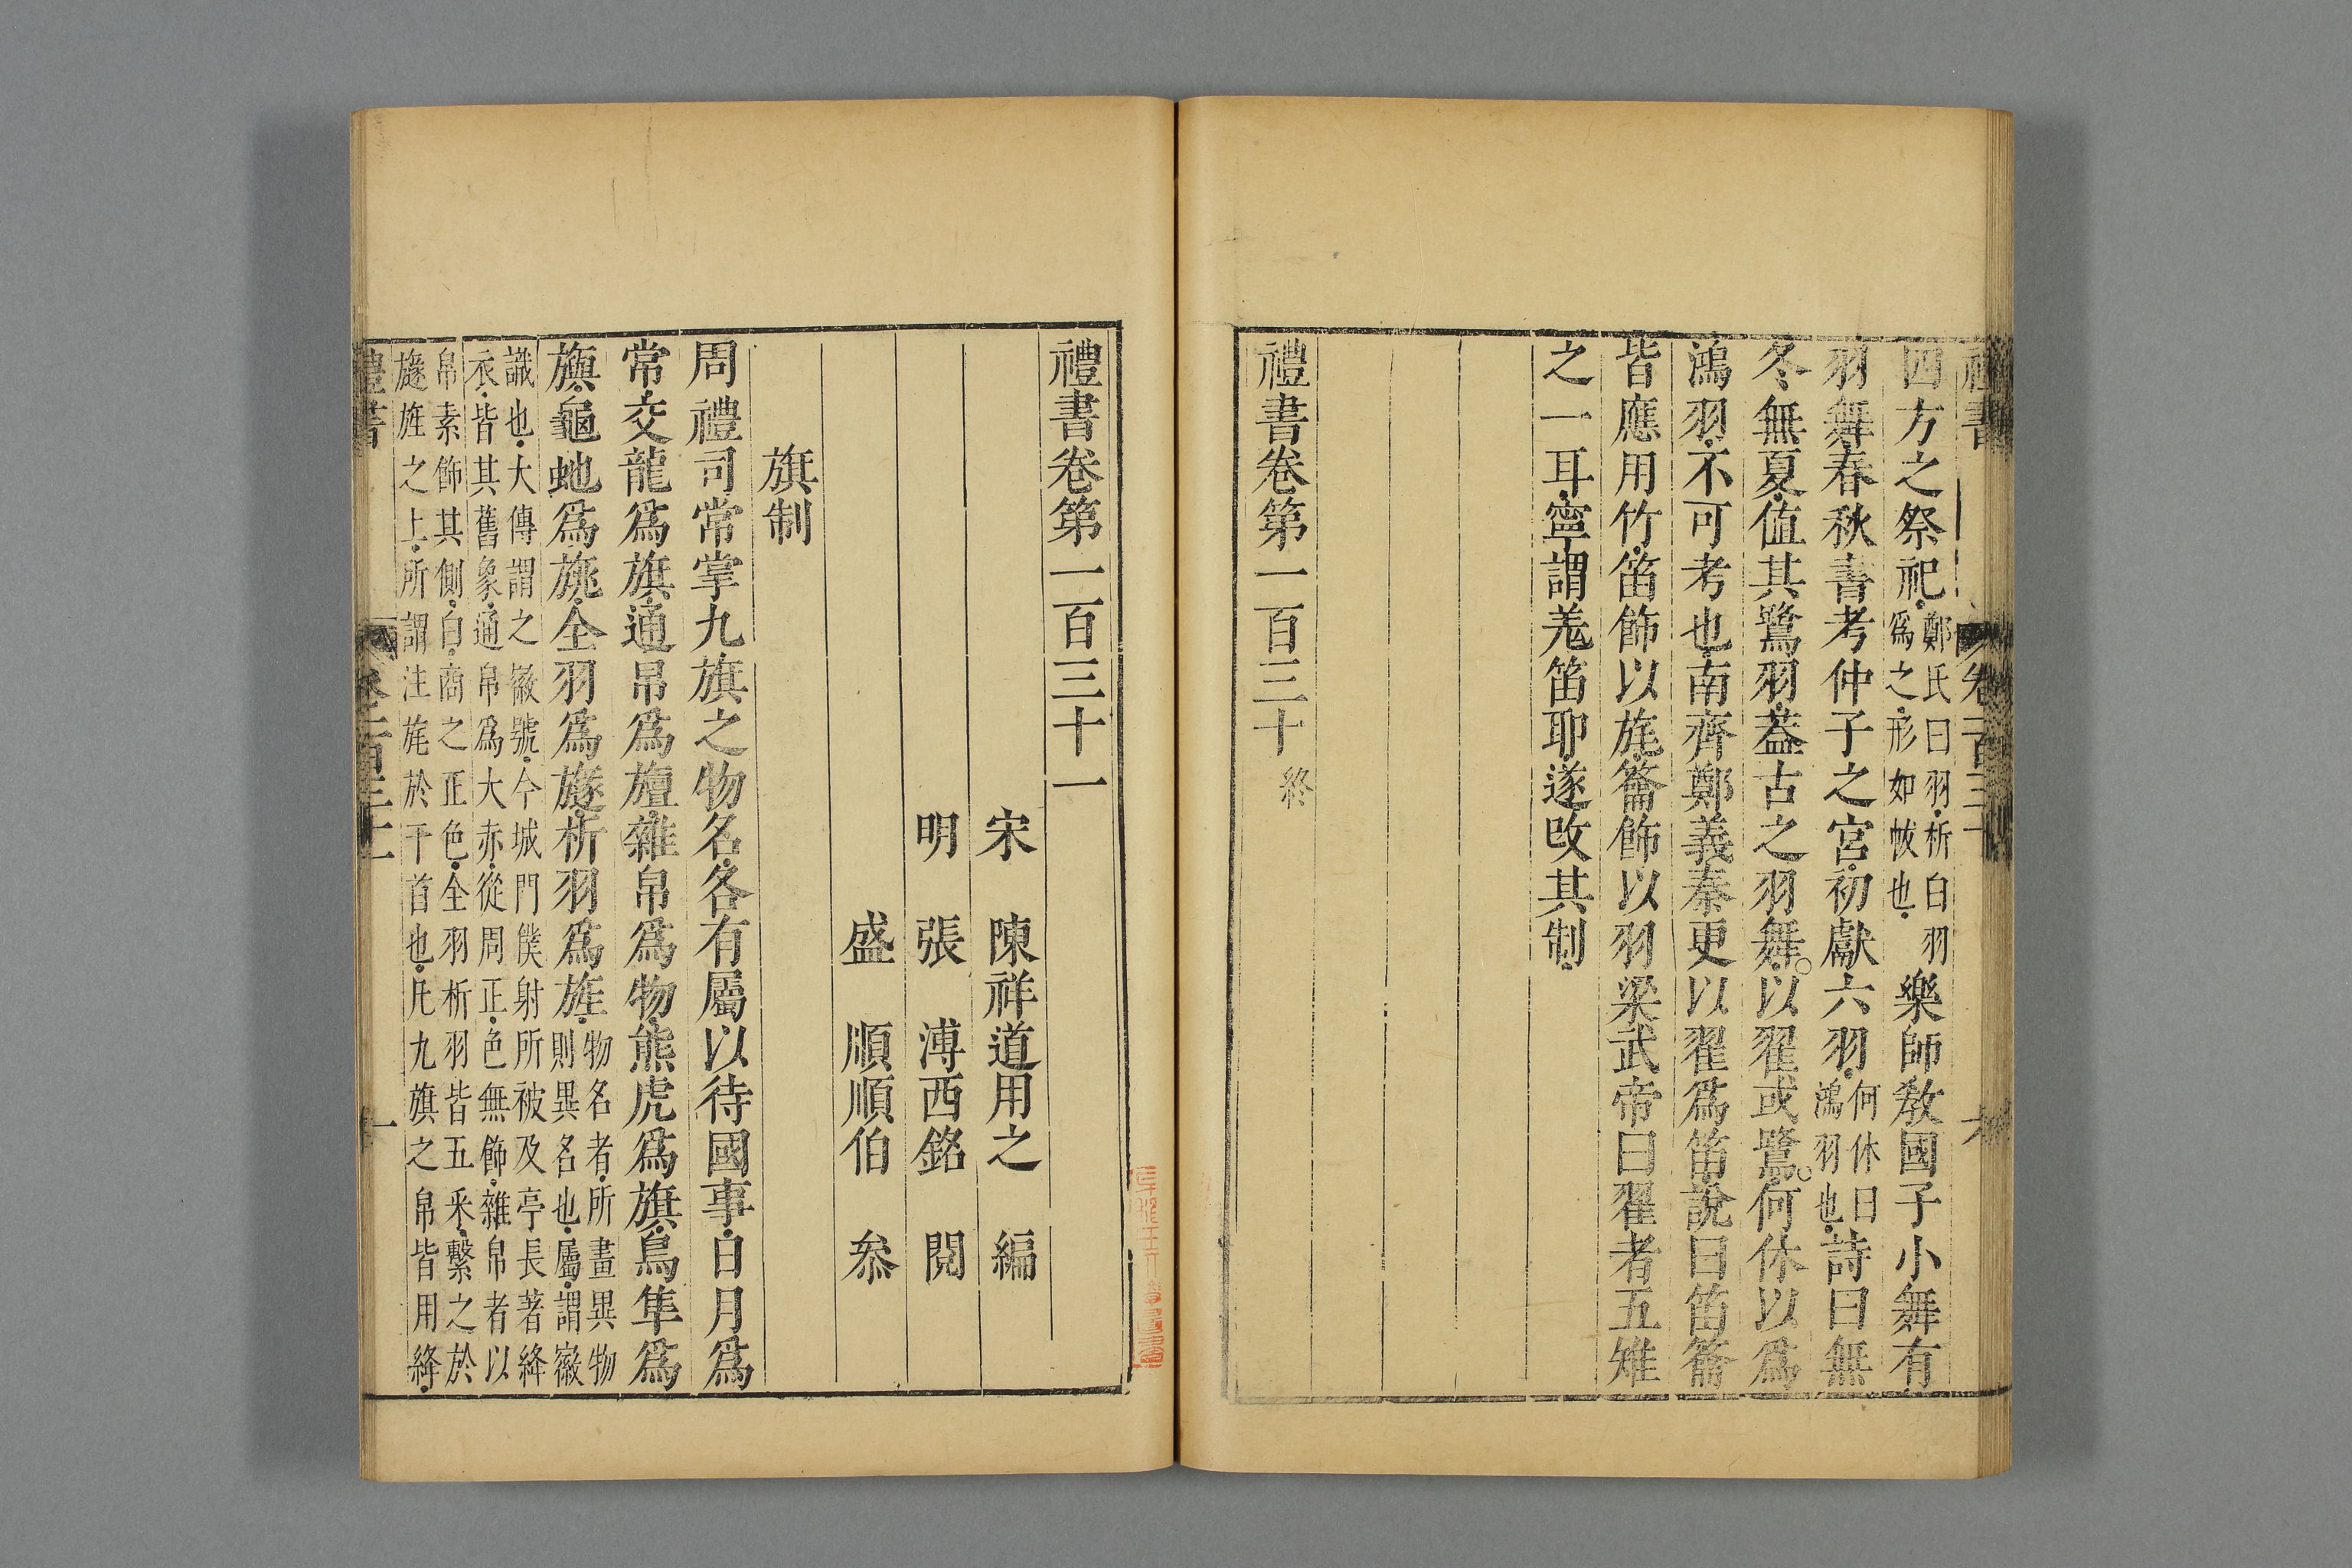 四方之祭祀鄭氏曰羽析白羽爲之形如帗也樂師敎國子小舞有
羽舞春秋書考仲子之宮初獻六羽何休曰鴻羽也詩曰無
冬無夏值其鷺羽葢古之羽舞以翟或鷺何休以爲
鴻羽不可考也南齊鄭義泰更以翟爲笛說曰笛籥
皆應用竹笛飾以旄籥飾以羽梁武帝曰翟者五雉
之一耳寧謂羗笛耶遂改其制
禮書卷第一百三十終
禮書卷第一百三十一
宋 陳祥道用之 編
明 張溥西銘 閱
盛順順伯 叅
旗制
周禮司常掌九旗之物名各有屬以待國事日月爲
常交龍爲旂通帛爲旜雜帛爲物熊虎爲旗鳥隼爲
旟龜虵爲旐全羽爲旞析羽爲旌物名者所畫異物則異名也屬謂徽
識也大傳謂之徽號今城門僕射所被及亭長著絳衣皆其舊象通帛爲大赤從周正色無飾雜帛者以
帛素飾其側白商之正色全羽析羽皆五采繫之於旞旌之上所謂注旄於干首也凡九旗之帛皆用絳
禮書
卷一百三十一
一